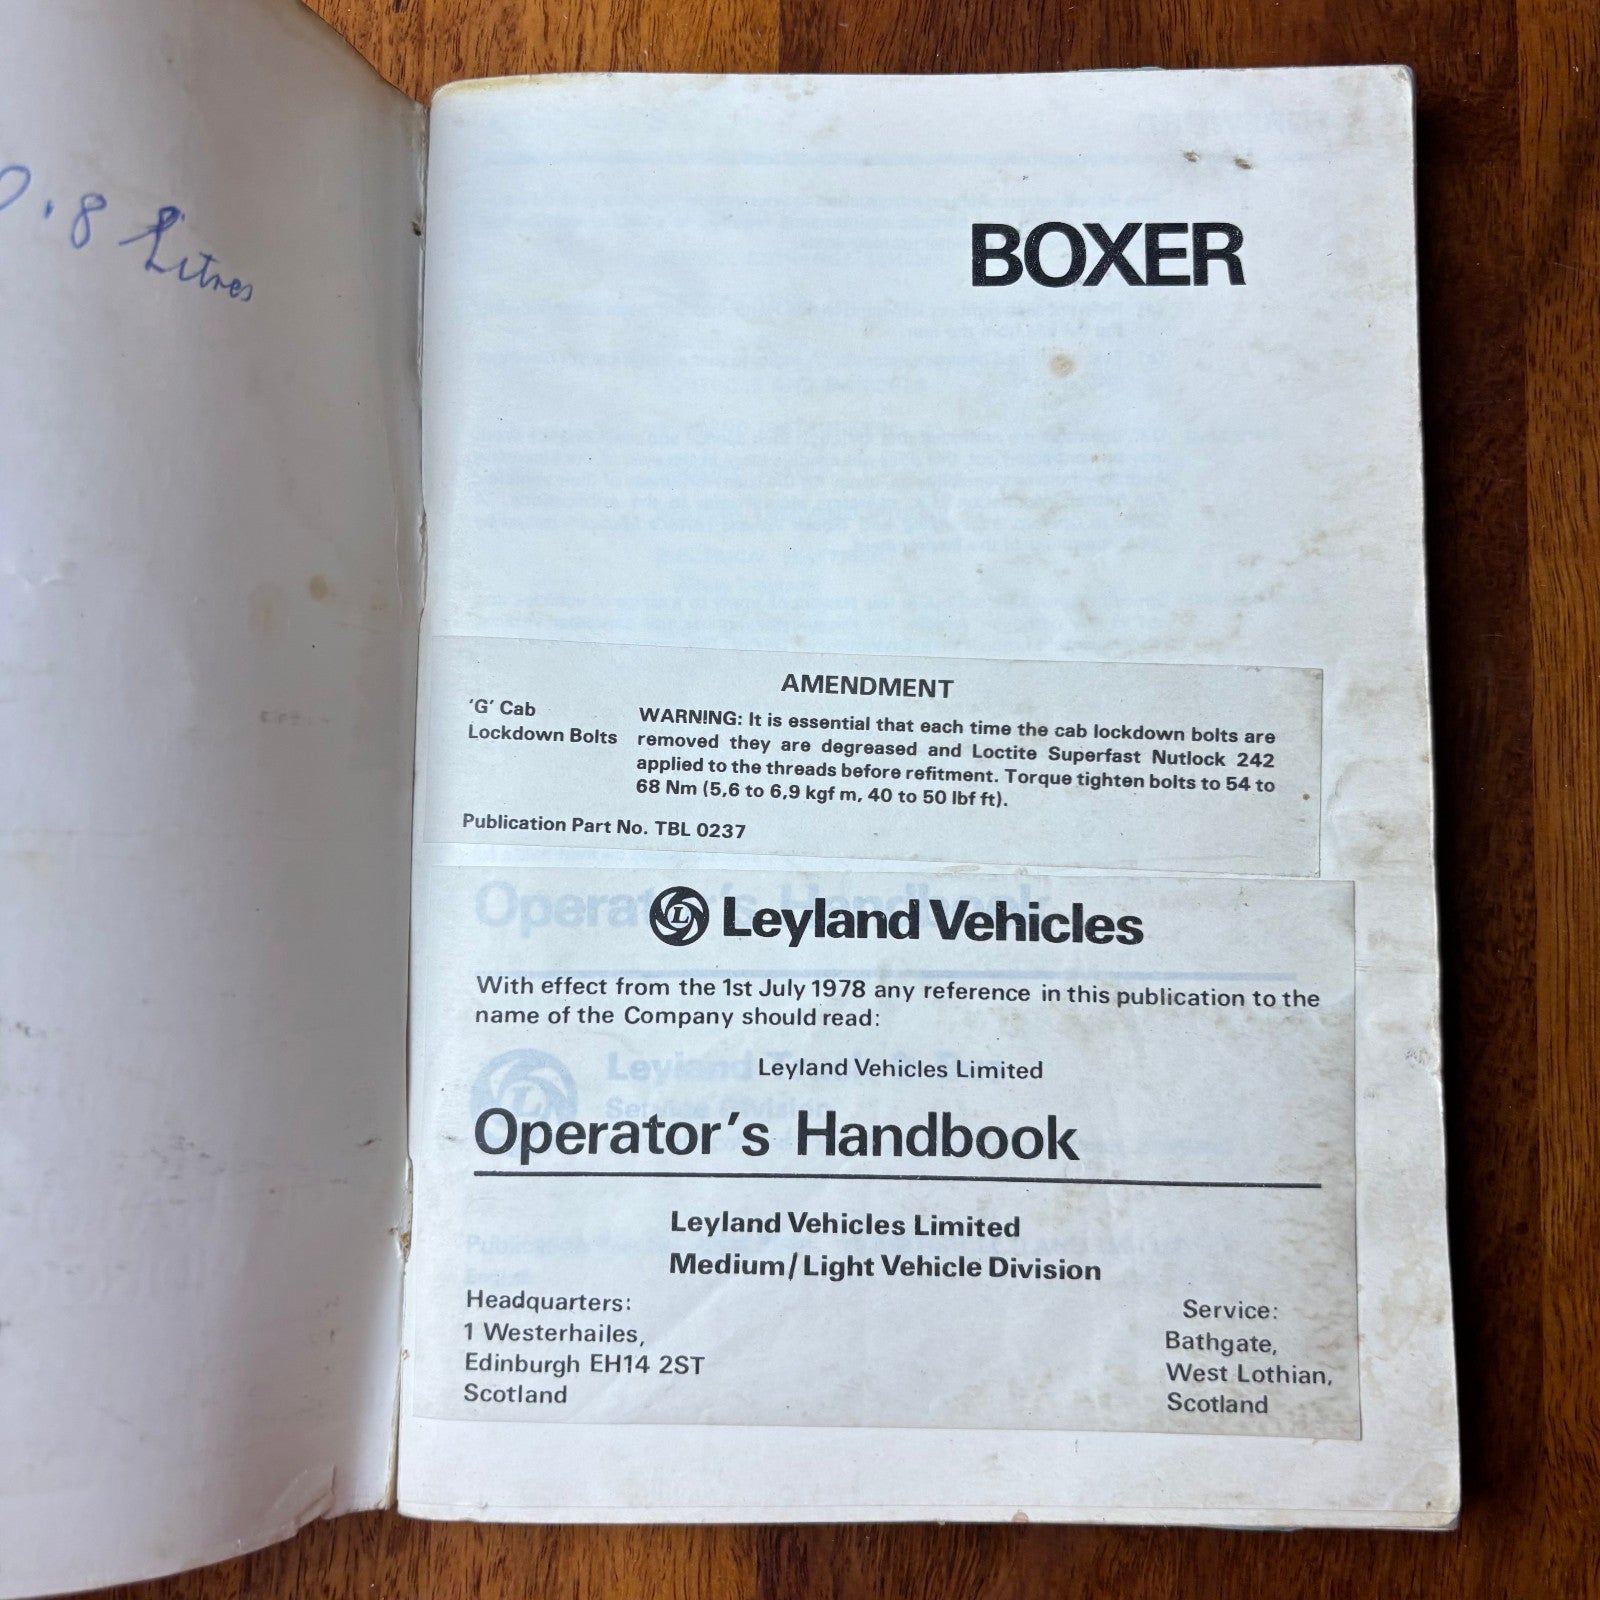 .8 Litres
BOXER
AMENDMENT
'G' Cab
Lockdown Bolts
WARNING: It is essential that each time the cab lockdown bolts are
removed they are degreased and Loctite Superfast Nutlock 242
applied to the threads before refitment. Torque tighten bolts to 54 to
68 Nm (5,6 to 6,9 kgf m, 40 to 50 lbf ft).
Publication Part No. TBL 0237
L Leyland Vehicles
With effect from the 1st July 1978 any reference in this publication to the
name of the Company should read:
Leyland Vehicles Limited
Operator's Handbook
Leyland Vehicles Limited
Medium/Light Vehicle Division
Headquarters:
1 Westerhailes,
Edinburgh EH14 2ST
Scotland
Service:
Bathgate,
West Lothian,
Scotland